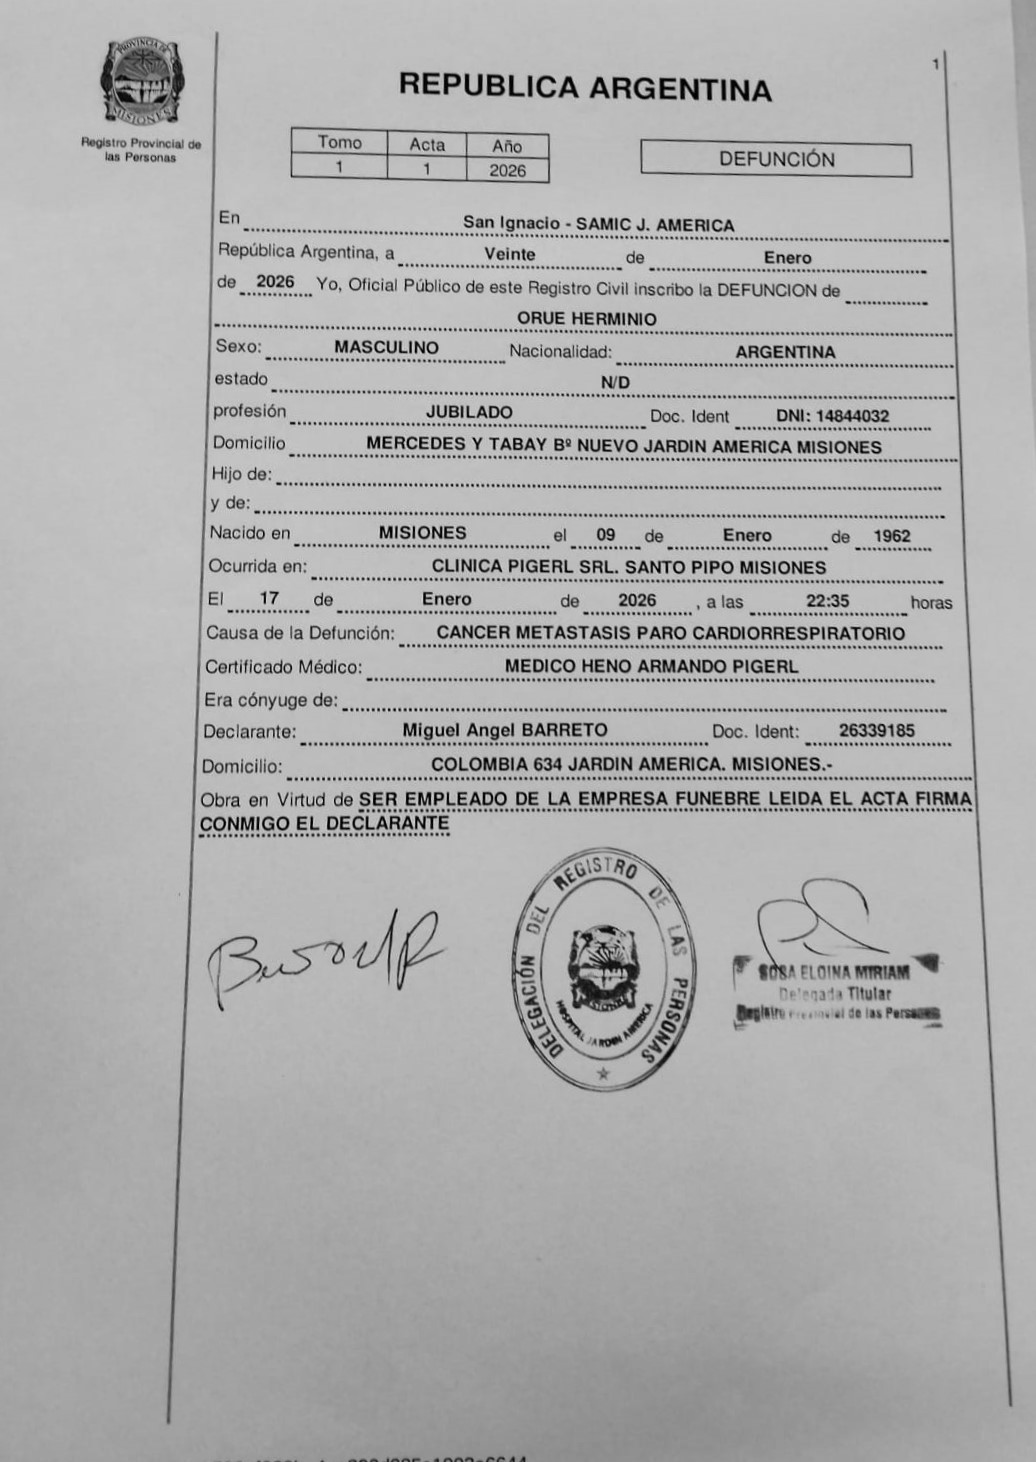 1
PROVINCIA DE
MISIONES
Registro Provincial de
las Personas
REPUBLICA ARGENTINA
Tomo Acta Año
1 1 2026
DEFUNCIÓN
En San Ignacio - SAMIC J. AMERICA
República Argentina, a Veinte de Enero
de 2026 Yo, Oficial Público de este Registro Civil inscribo la DEFUNCION de
ORUE HERMINIO
Sexo: MASCULINO Nacionalidad: ARGENTINA
estado N/D
profesión JUBILADO Doc. Ident DNI: 14844032
Domicilio MERCEDES Y TABAY Bº NUEVO JARDIN AMERICA MISIONES
Hijo de:
y de:
Nacido en MISIONES el 09 de Enero de 1962
Ocurrida en: CLINICA PIGERL SRL. SANTO PIPO MISIONES
El 17 de Enero de 2026 , a las 22:35 horas
Causa de la Defunción: CANCER METASTASIS PARO CARDIORRESPIRATORIO
Certificado Médico: MEDICO HENO ARMANDO PIGERL
Era cónyuge de:
Declarante: Miguel Angel BARRETO Doc. Ident: 26339185
Domicilio: COLOMBIA 634 JARDIN AMERICA. MISIONES.-
Obra en Virtud de SER EMPLEADO DE LA EMPRESA FUNEBRE LEIDA EL ACTA FIRMA
CONMIGO EL DECLARANTE
DELEGACIÓN DEL REGISTRO DE LAS PERSONAS
HOSPITAL JARDIN AMERICA
SOSA ELOINA MIRIAM
Delegada Titular
Registro Provincial de las Personas